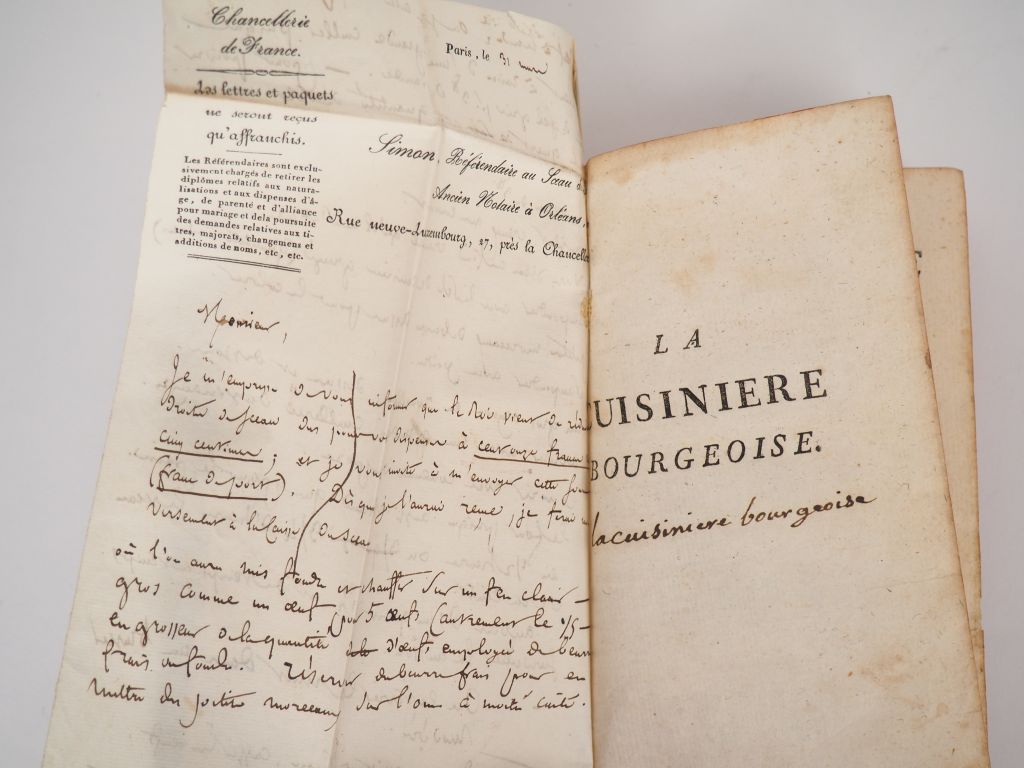 Chancellerie
de France.
Les lettres et paquets
ne seront reçus
qu'affranchis.
Les Référendaires sont exclu-
sivement chargés de retirer les
diplômes relatifs aux natura-
lisations et aux dispenses d'â-
ge, de parenté et d'alliance
pour mariage et dela poursuite
des demandes relatives aux ti-
tres, majorats, changemens et
additions de noms, etc, etc.
Paris, le 31 mars
Simon, Référendaire au Sceau d
Ancien Notaire à Orléans,
Rue neuve-Luxembourg, 27, près la Chancell
Monsieur,
Je m'empresse de vous informer que le Roi vient de
droits de Sceau des pour vos dispenses à cent onze francs
cinq centimes; et je vous invite à m'envoyer cette
(franc de port). Dès que je l'aurai reçue, je ferai
versement à la Caisse du Sceau
où l'on aura mis fondre et chauffer sur un feu clair –
gros comme un œuf (pour 5 œufs (autrement le 1/5
en grosseur de la quantité d'œufs employée de beurre
frais ou fondu. réserver du beurre frais pour en
mettre des petits morceaux sur l'om à moitié cuite.
LA
UISINIERE
BOURGEOISE.
la cuisiniere bourgeoise